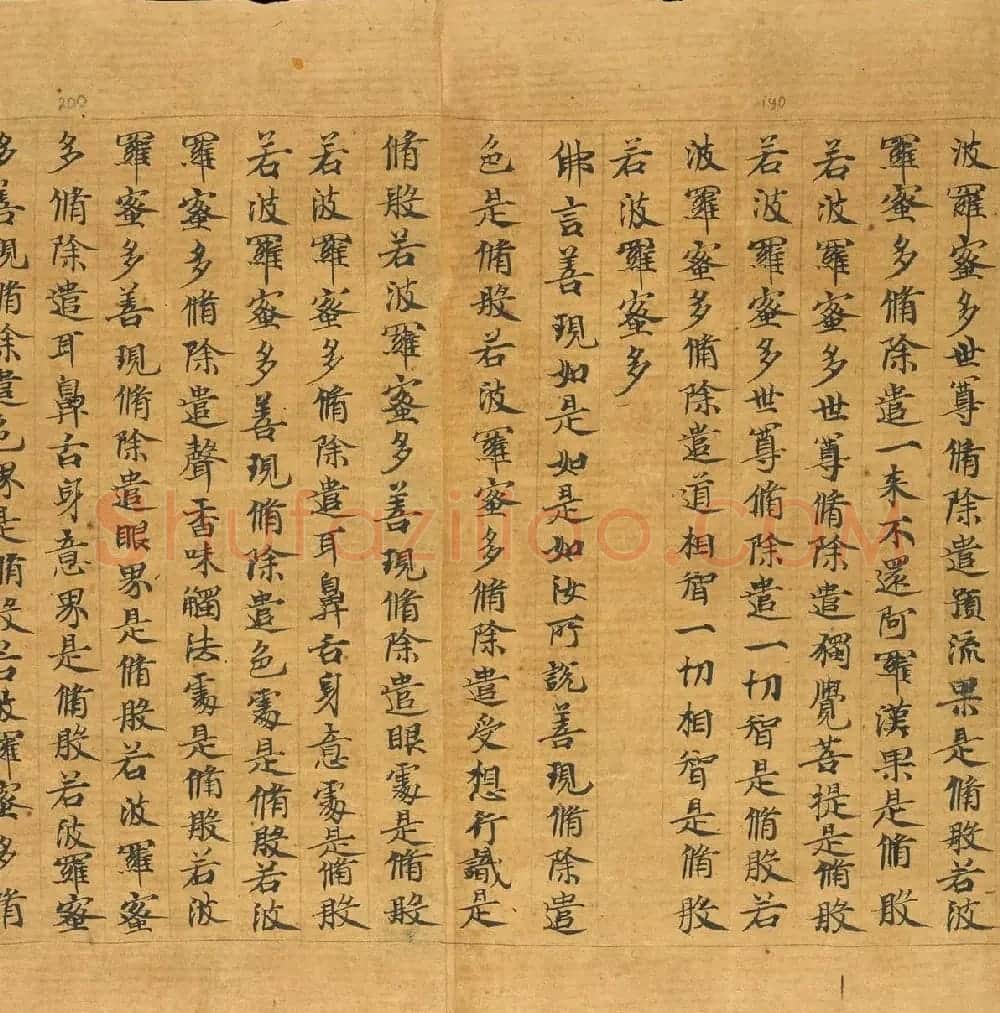 波羅蜜多世尊脩除遣預流果是脩般若波
羅蜜多脩除遣一来不還阿羅漢果是脩般
若波羅蜜多世尊脩除遣獨覺菩提是脩般
若波羅蜜多世尊脩除遣一切智是脩般若
波羅蜜多脩除遣道相智一切相智是脩般
若波羅蜜多
佛言善現如是如是如汝所說善現脩除遣
色是脩般若波羅蜜多脩除遣受想行識是
脩般若波羅蜜多善現脩除遣眼處是脩般
若波羅蜜多脩除遣耳鼻舌身意處是脩般
若波羅蜜多善現脩除遣色處是脩般若波
羅蜜多脩除遣聲香味觸法處是脩般若波
羅蜜多善現脩除遣眼界是脩般若波羅蜜
多脩除遣耳鼻舌身意界是脩般若波羅蜜
多善現脩除遣色界是脩般若波羅蜜多脩
190
200
Shufaziliao.COM